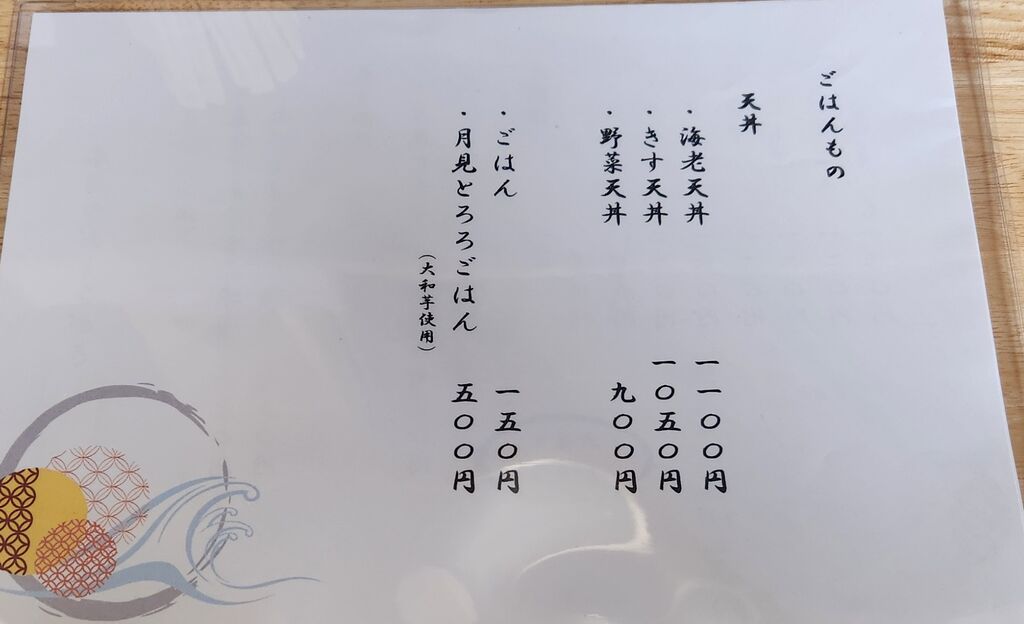 ごはんもの
天丼
・海老天丼 一一〇〇円
・きす天丼 一〇五〇円
・野菜天丼 九〇〇円
・ごはん 一五〇円
・月見とろろごはん 五〇〇円
（大和芋使用）